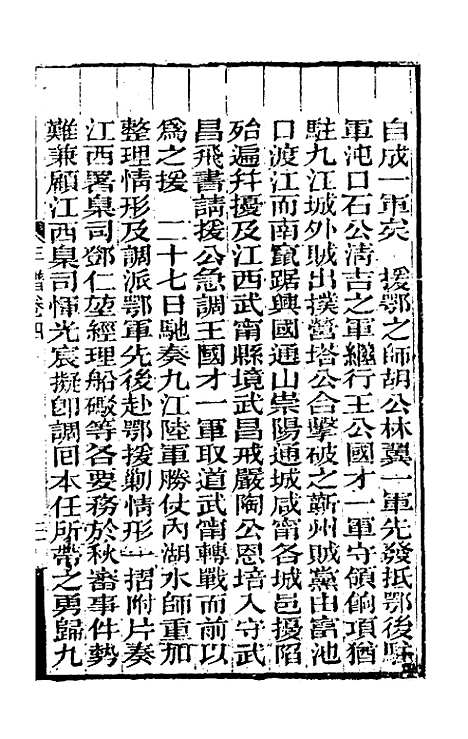 自成一軍矣　援鄂之師胡公林翼一軍先發抵鄂後駐
軍沌口石公清吉之軍繼行王公國才一軍守領餉項猶
駐九江城外賊出撲營塔公合擊破之蘄州賊黨由富池
口渡江而南竄踞興國通山崇陽通城咸甯各城邑援陷
殆遍幷擾及江西武甯縣境武昌戒嚴陶公恩培入守武
昌飛書請援公急調王國才一軍取道武甯轉戰而前以
爲之援　二十七日馳奏九江陸軍勝仗內湖水師重加
整理情形及調派鄂軍先後赴鄂援勦情形一摺附片奏
江西署臬司鄧仁堃經理船礮等各要務於秋審事件勢
難兼顧江西臬司惲光宸擬卽調囘本任所帶之勇歸九
年譜卷四